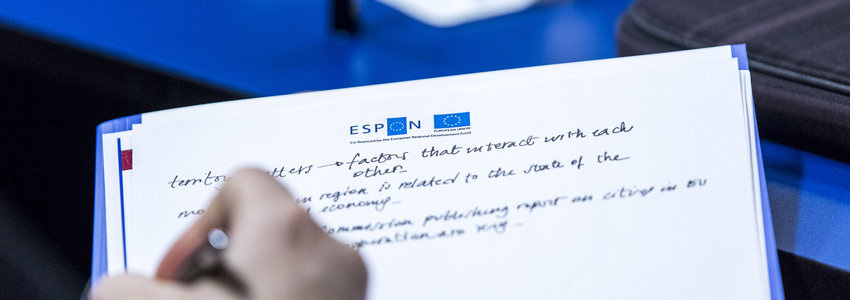 ESPON
EUROPEAN UNION
Co-financed by the European Regional Development Fund
territory matters → factors that interact with each
other.
region is related to the state of the
economy –
Commission publishing report on cities in EU